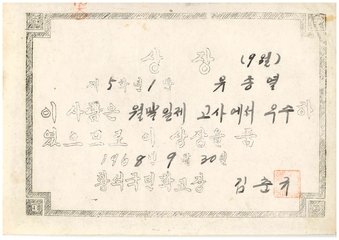 상장 (9월)
제 5학년 1반 유종열
이 사람은 월말일제 고사에서 우수하
였으므로 이 상장을 줌
1968년 9월 30일
황석국민학교장 김순기